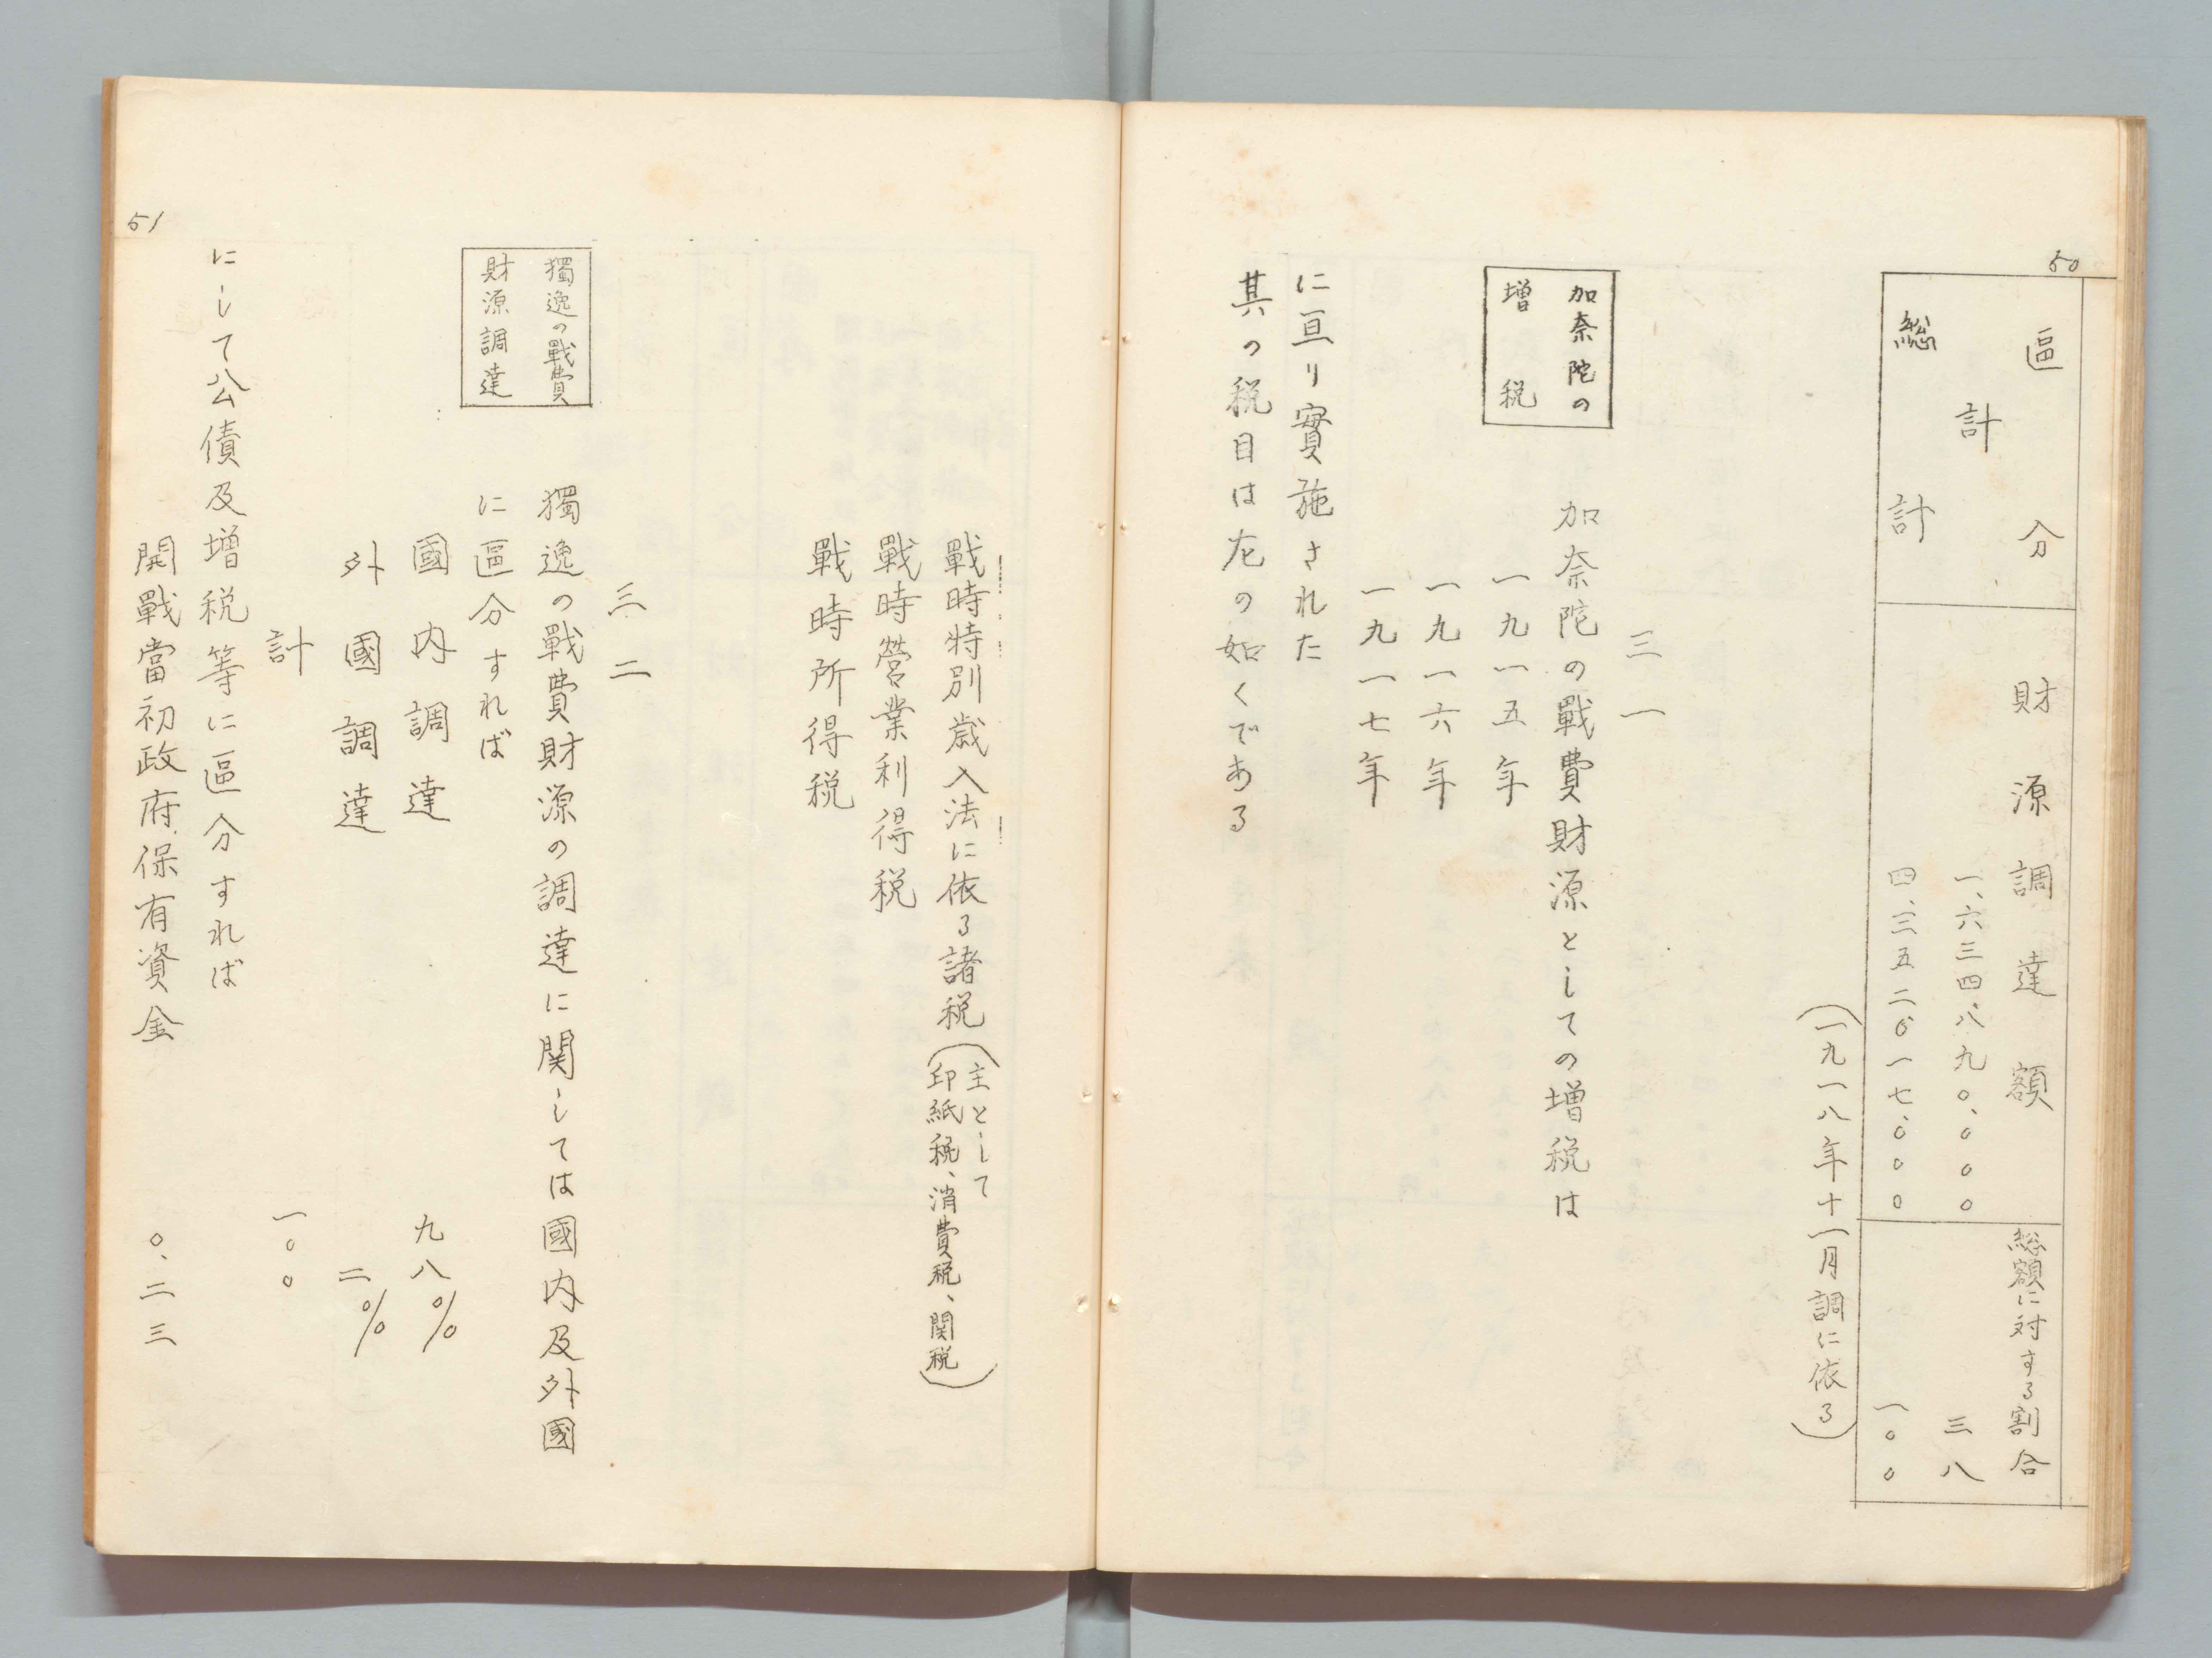 50
區分 財源調達額 総額に対する割合
計 一、六三四、八九〇、〇〇〇 三八
総計 四、三五二、〇一七、〇〇〇 一〇〇
(一九一八年十一月調に依る)
三一
加奈陀の
増税
加奈陀の戰費財源としての増税は
一九一五年
一九一六年
一九一七年
に亘り實施された
其の税目は左の如くである
戰時特別歳入法に依る諸税(主として
印紙税、消費税、関税)
戰時營業利得税
戰時所得税
三二
獨逸の戰費
財源調達
獨逸の戰費財源の調達に関しては國内及外國
に區分すれば
國内調達 九八%
外國調達 二%
計 一〇〇
にして公債及増税等に區分すれば
開戰當初政府保有資金 〇、二三
51